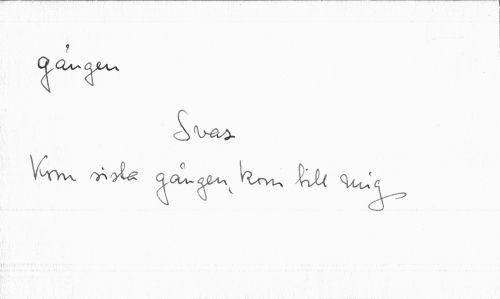 gången
Svas
Kom sista gången, kom till mig